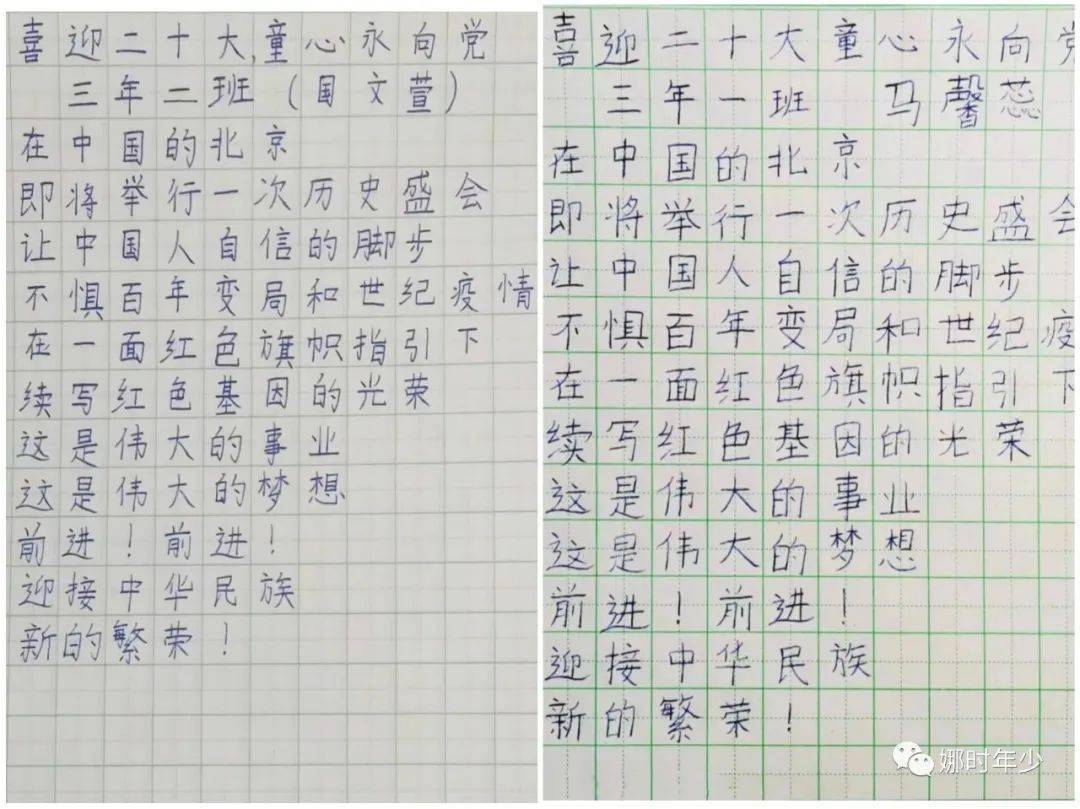 喜迎二十大,童心永向党
三年二班（国文萱）
在中国的北京
即将举行一次历史盛会
让中国人自信的脚步
不惧百年变局和世纪疫情
在一面红色旗帜指引下
续写红色基因的光荣
这是伟大的事业
这是伟大的梦想
前进！前进！
迎接中华民族
新的繁荣！
喜迎二十大童心永向党
三年一班 马馨蕊
在中国的北京
即将举行一次历史盛会
让中国人自信的脚步
不惧百年变局和世纪疫
在一面红色旗帜指引下
续写红色基因的光荣
这是伟大的事业
这是伟大的梦想
前进！前进！
迎接中华民族
新的繁荣！
娜时年少